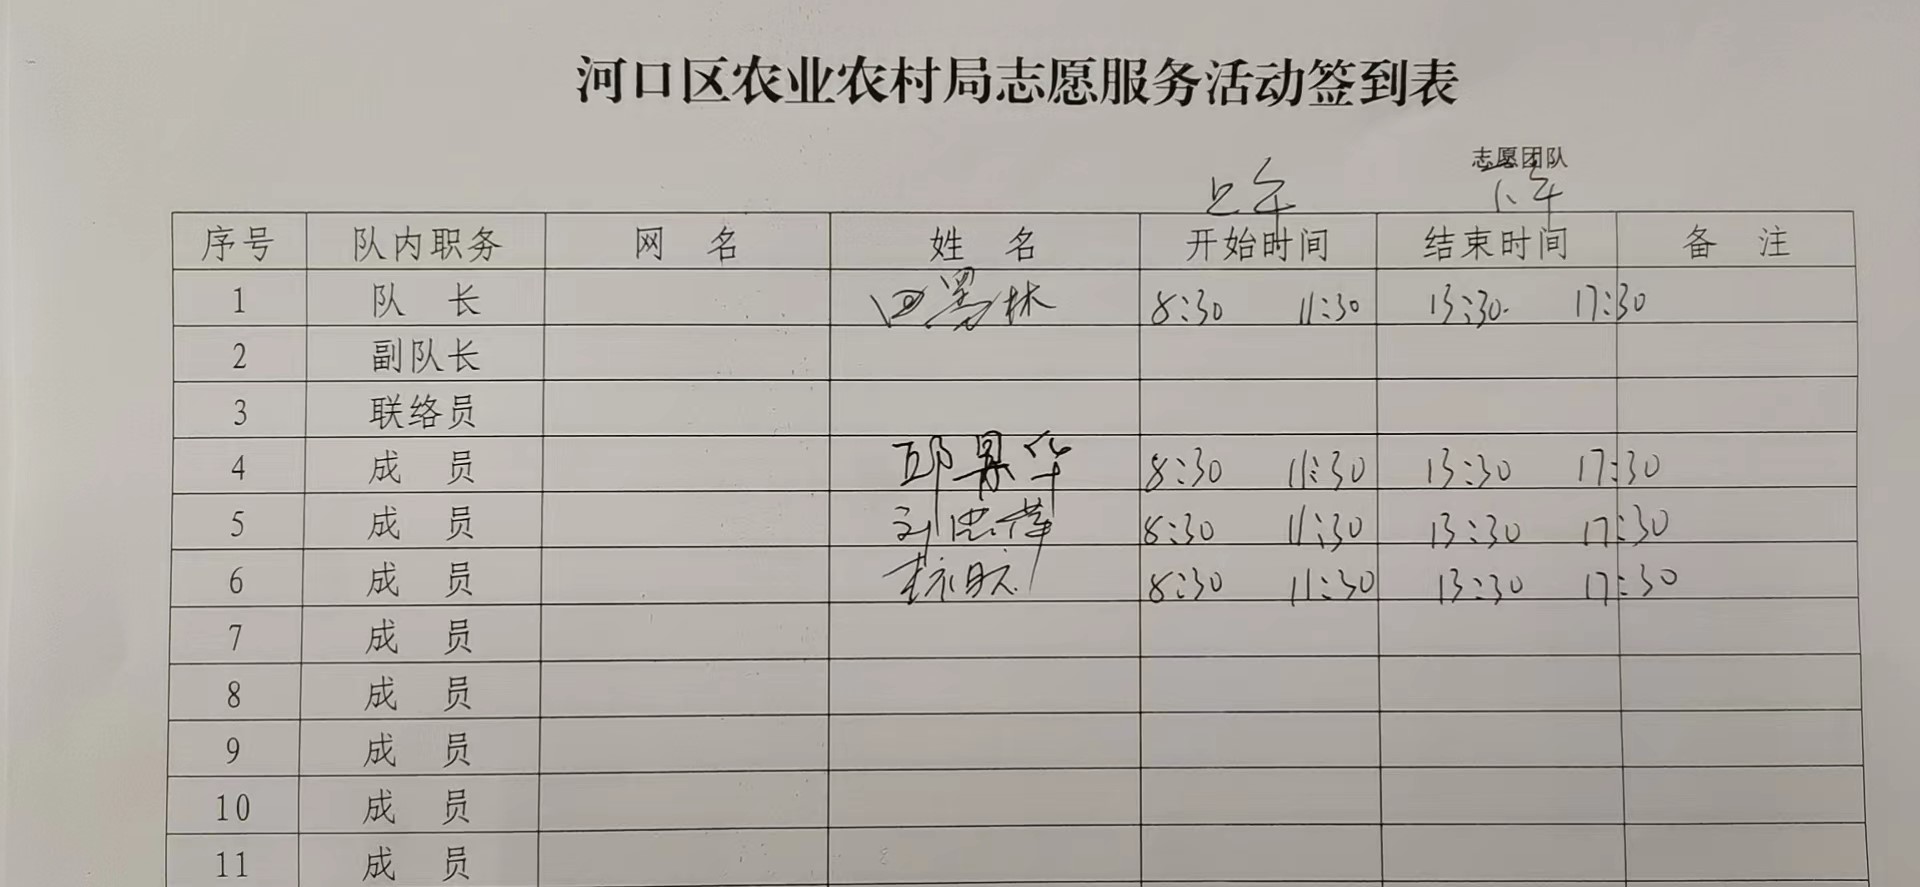 河口区农业农村局志愿服务活动签到表
志愿团队
上午 下午
序号 队内职务 网 名 姓 名 开始时间 结束时间 备 注
1 队 长 林 8:30 11:30 13:30 17:30
2 副队长
3 联络员
4 成 员 邱景华 8:30 11:30 13:30 17:30
5 成 员 刘忠 8:30 11:30 13:30 17:30
6 成 员 8:30 11:30 13:30 17:30
7 成 员
8 成 员
9 成 员
10 成 员
11 成 员